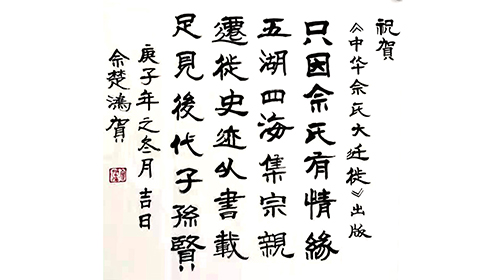 祝賀
《中华佘氏大迁徙》出版
只因佘氏有情緣
五湖四海集宗親
遷徙史迹从書載
足見後代子孫賢
庚子年之冬月吉日
佘楚鴻賀